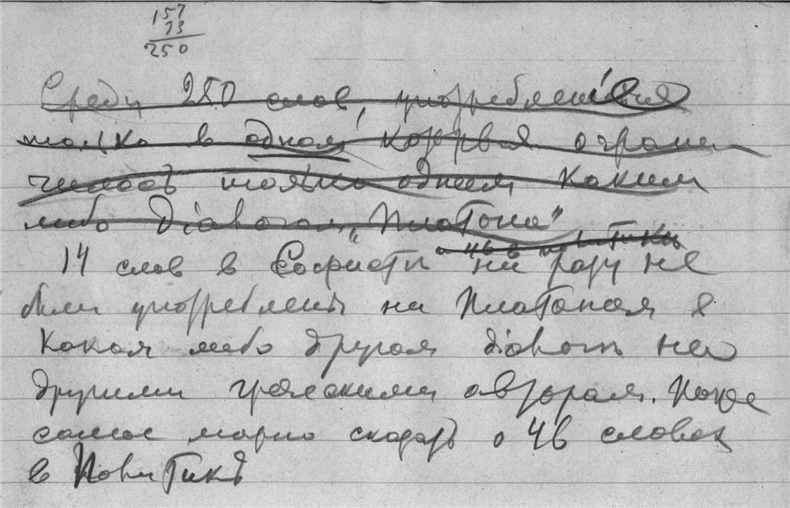 157
73
250
Среди 250 слов, употребления
только в одном
только одним каким
либо діалогом „Платона"
14 слов в Софисти ни разу не
были употреблены ни Платоном в
каком либо другом діалоги ни
другими греческими авторами. То же
самое можно сказать о 46 словах
в Политикѣ